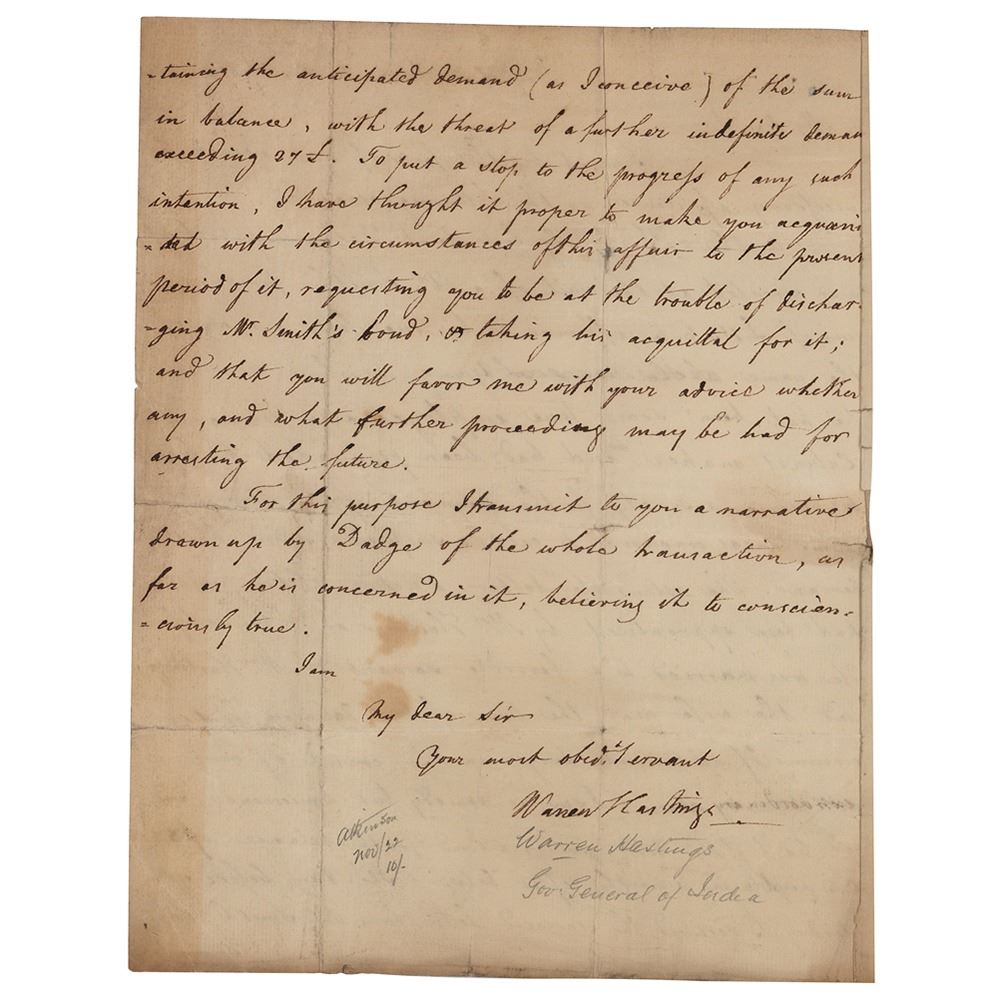 -taining the anticipated demand (as I conceive) of the sum
in balance, with the threat of a further indefinite deman
exceeding 27 £. To put a stop to the progress of any such
intention, I have thought it proper to make you acquain
=ted with the circumstances of this affair to the present
period of it, requesting you to be at the trouble of dischar-
=ging Mr. Smith's bond, or taking his acquittal for it;
and that you will favor me with your advice whether
any, and what further proceeding may be had for
arresting the future.
For this purpose I transmit to you a narrative
drawn up by Dadge of the whole transaction, as
far as he is concerned in it, believing it to conscien-
=ciously true.
I am
My dear Sir
Your most obedt. Servant
Warren Hastings
Warren Hastings
Gov. General of India
Atkinson
Nov/22
10/-